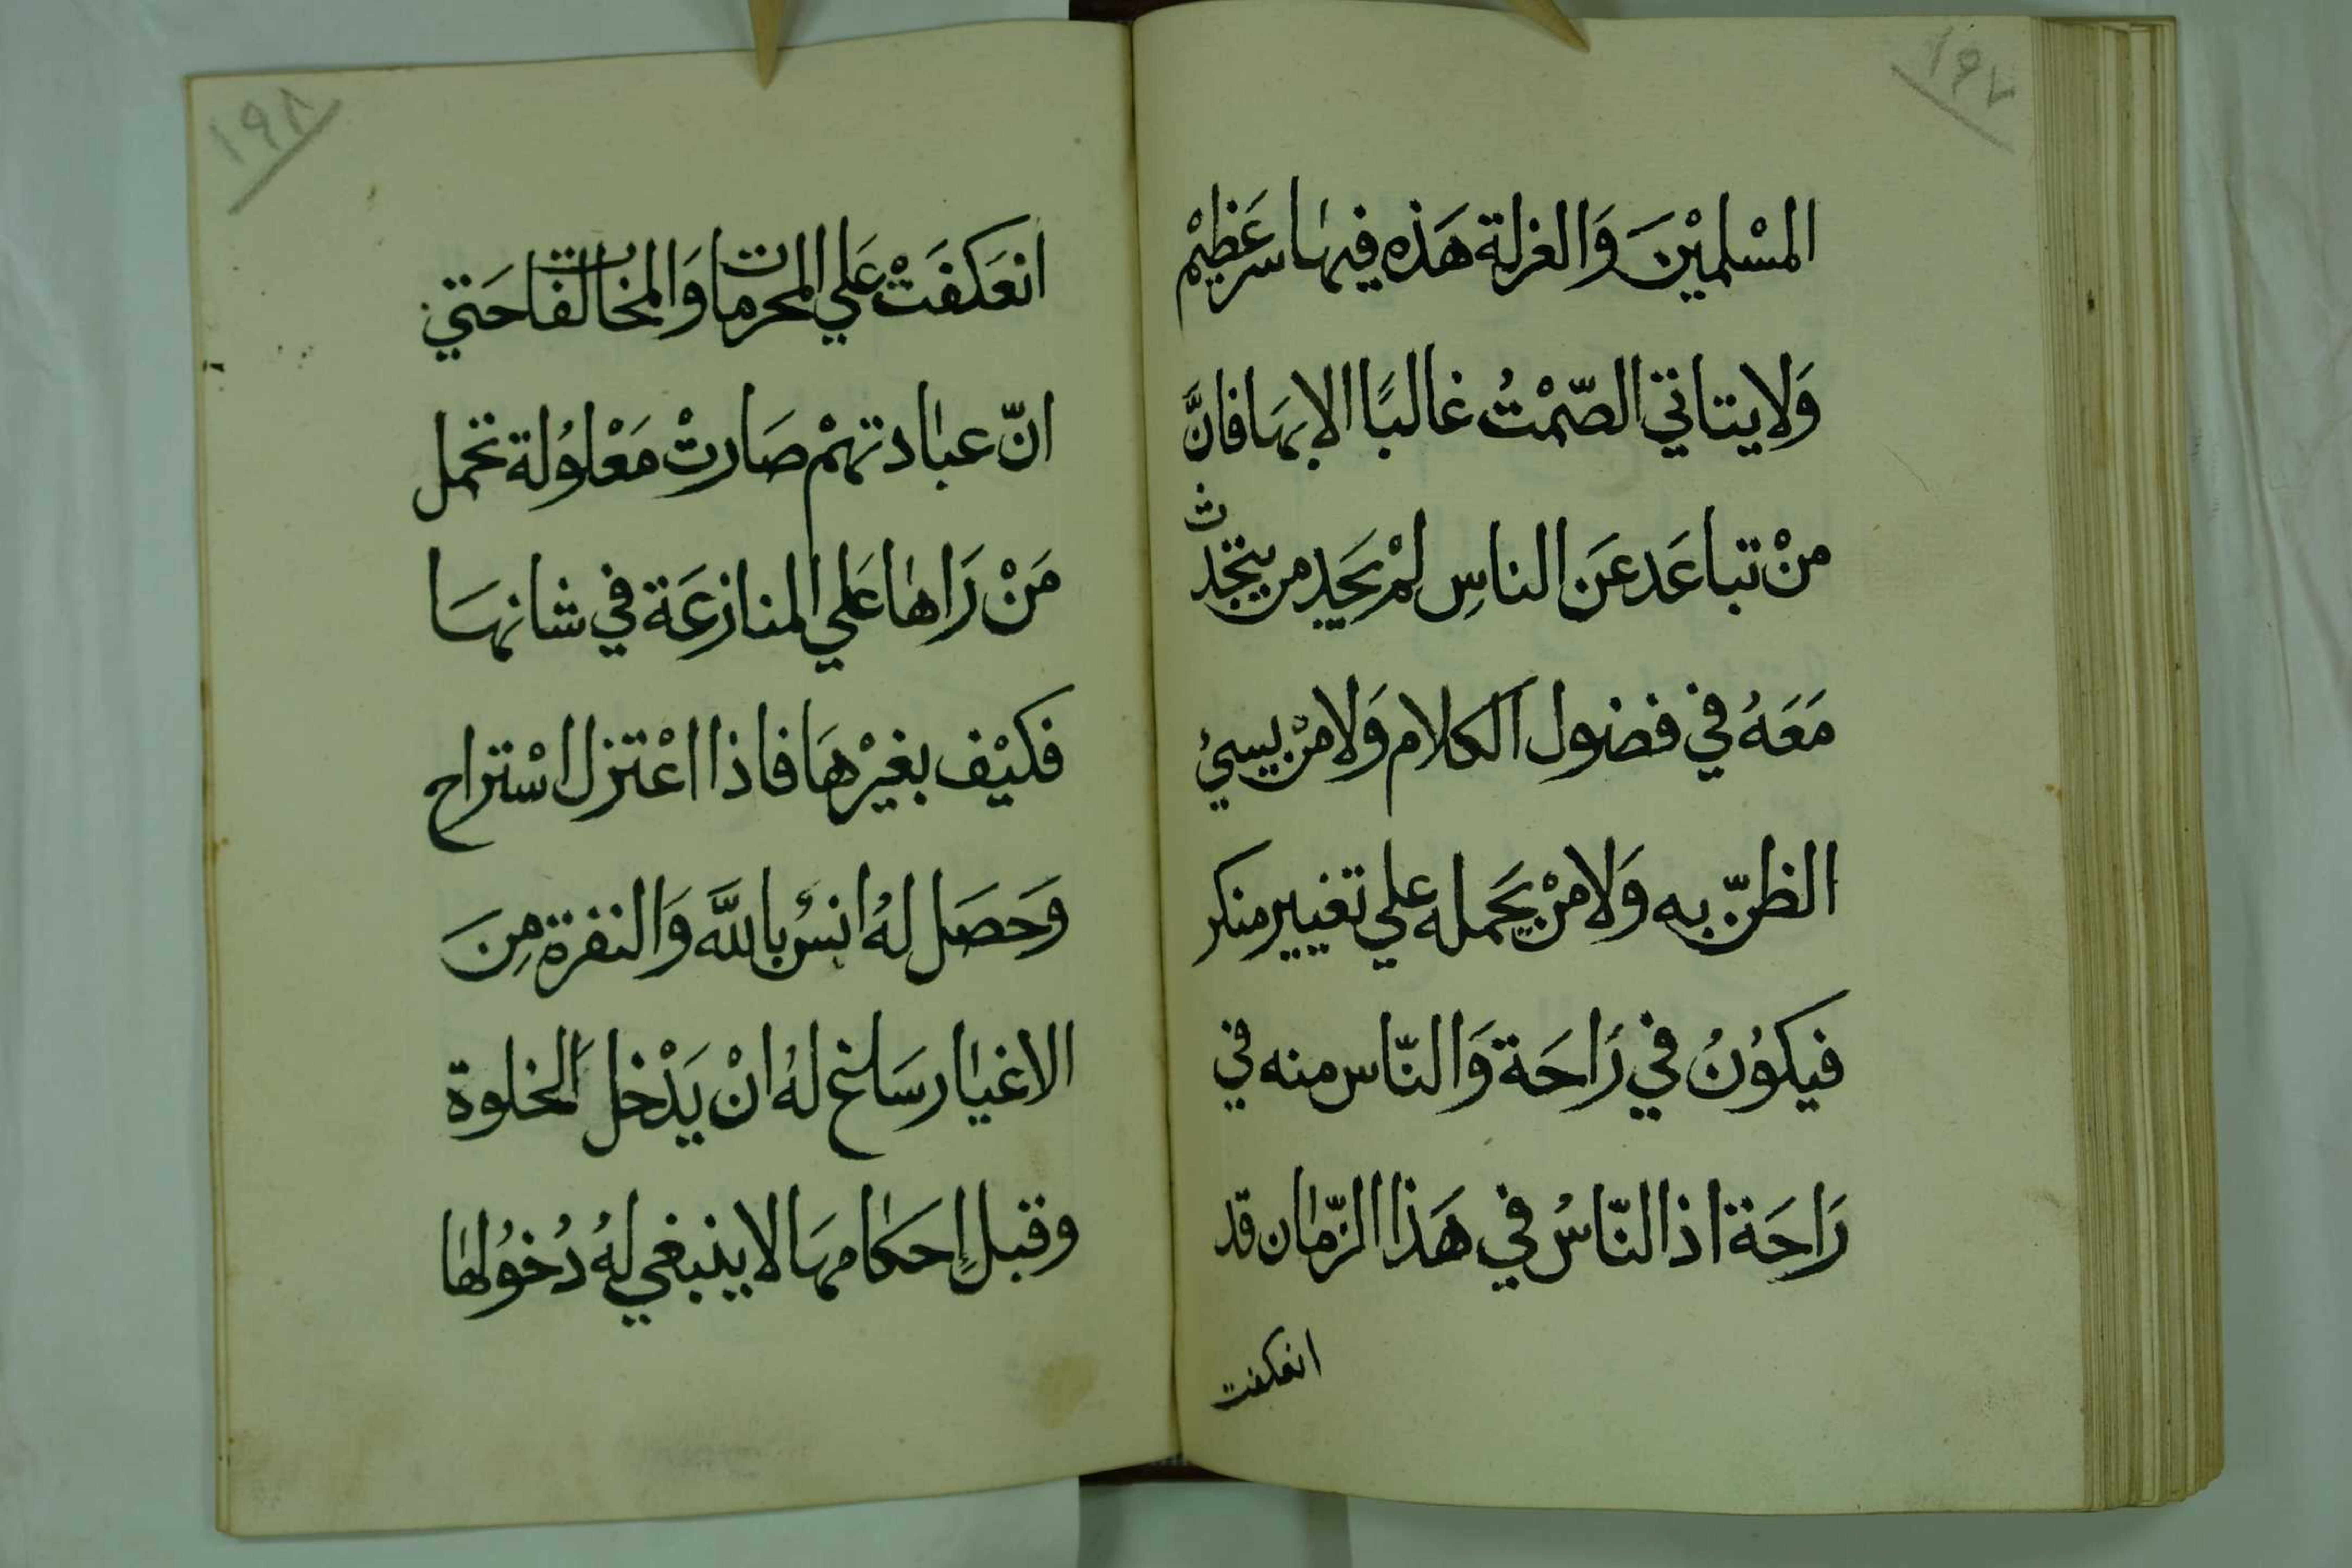 ١٩٧
المسْلميْنَ وَالعزلة هَذه فيهٰا سر عَظيْم
وَلا يتاتي الصّمْتُ غالبًا الا بهَا فانَّ
منْ تباعَد عَن الناسِ لمْ يَجد من يتحدث
مَعَهُ في فضول الكلام وَلا منْ يسيئ
الظنّ به وَلا منْ يَحمله علي تغيير منكر
فيكوُنُ في رَاحَة وَالنّاس منه في
رَاحَة اذ النّاسُ في هَذا الزّمٰان قد
انعكفت
١٩٨
انعَكفَتْ عَلي المحرمات وَالمخالفات حَتي
انّ عبٰادتهمْ صَارتْ مَعْلوُلة تحمل
مَنْ رَاهٰا عَلي المنازعَة في شانهَا
فكيْف بغيْرهَا فاذا اعْتزل اسْتراح
وَحَصَل لهُ انسُ بالله وَالنفرة مِنَ
الاغيٰار سَاغ لهُ انْ يَدْخل الخلوة
وقبل إحكامهَا لا ينبغي لهُ دُخوُلهٰا